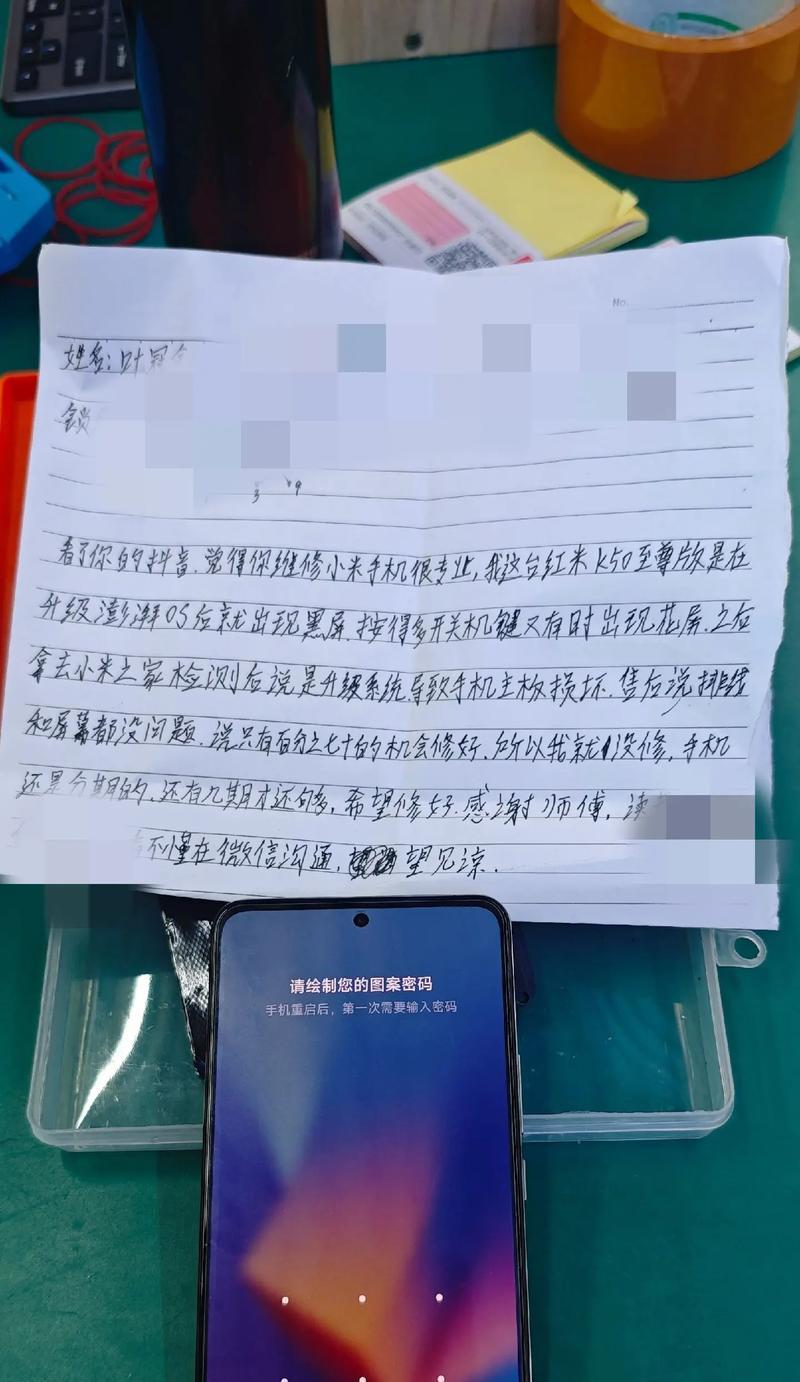 No.
姓名:叶冠
锁
3 9
看了你的抖音.觉得你维修小米手机很专业,我这台红米K50至尊版是在
升级澎湃OS后就出现黑屏.按得多开关机键又有时出现花屏.之后
拿去小米之家检测后说是升级系统导致手机主板损坏.售后说排线
和屏幕都没问题.说只有百分之七十的机会修好.所以我就没修,手机
还是分期的,还有几期才还够,希望修好.感谢师傅,读
不懂在微信沟通, 望见谅.
请绘制您的图案密码
手机重启后，第一次需要输入密码